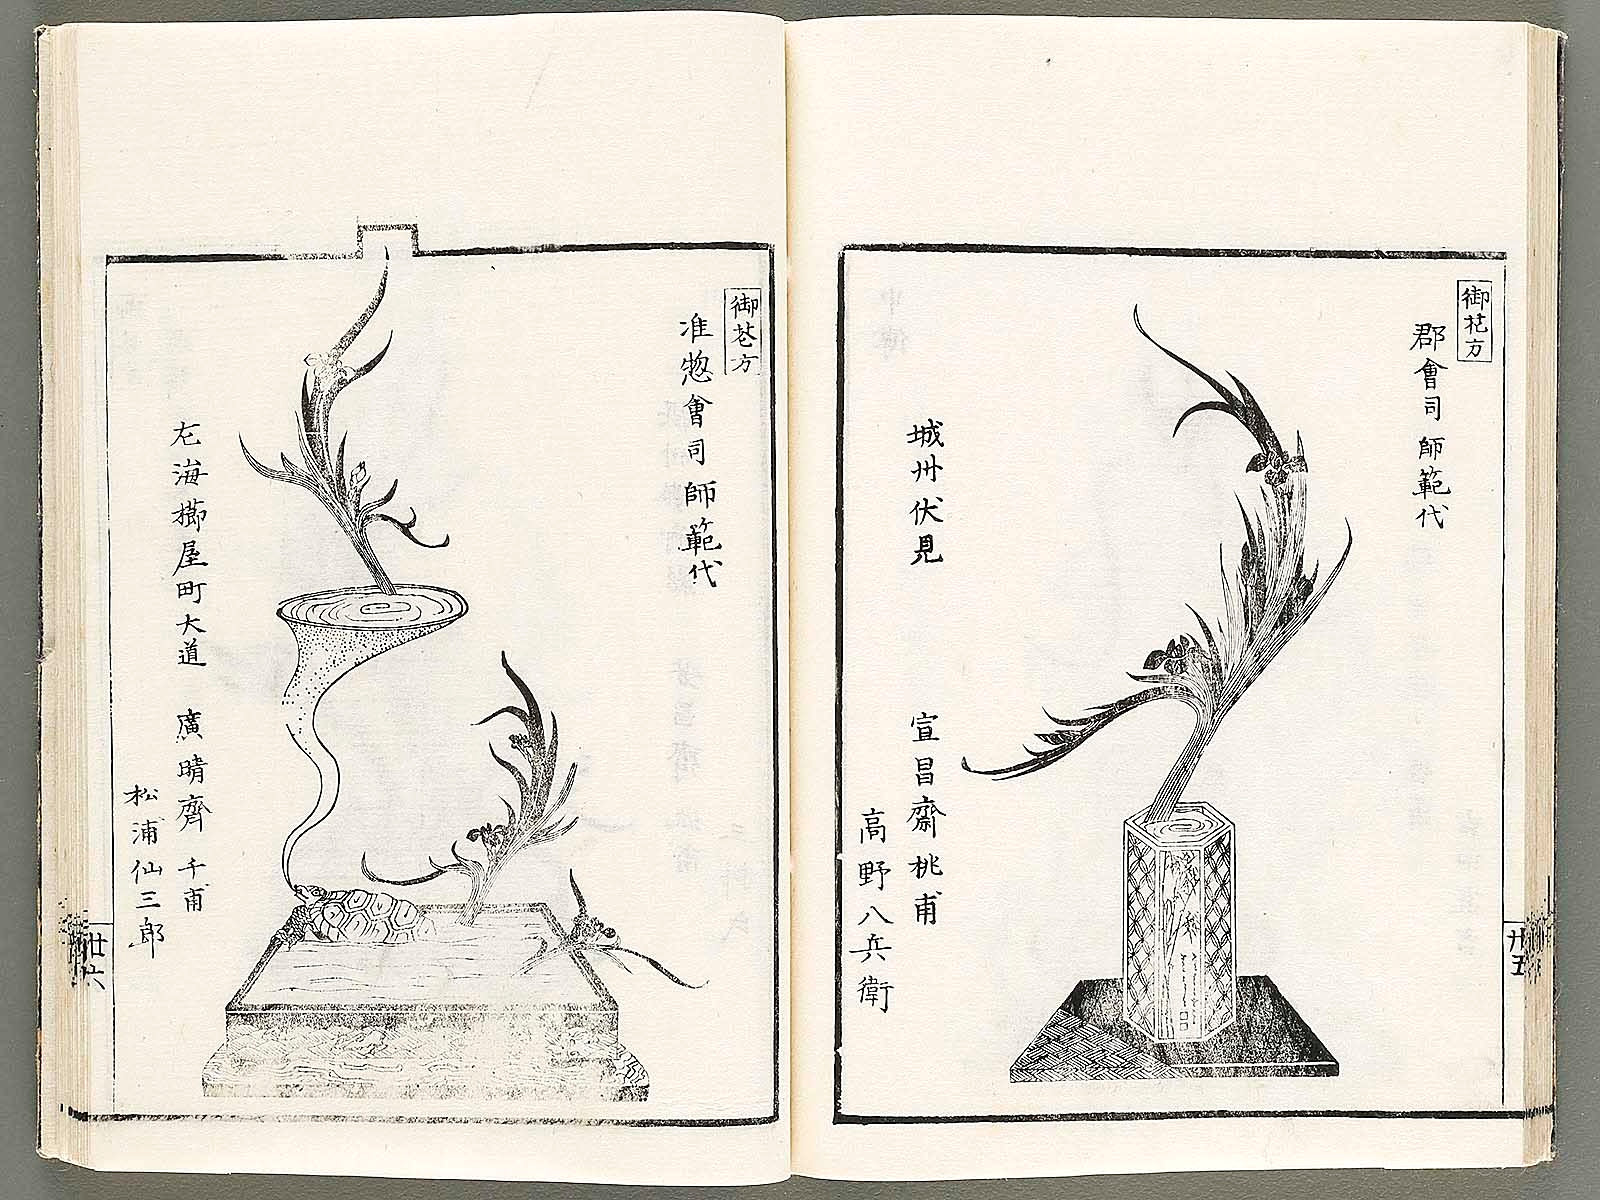 御花方
郡會司師範代
城州伏見
宣昌齋桃甫
高野八兵衛
廿五
御花方
准惣會司師範代
左海櫛屋町大道
廣晴齊千甫
松浦仙三郎
廿六